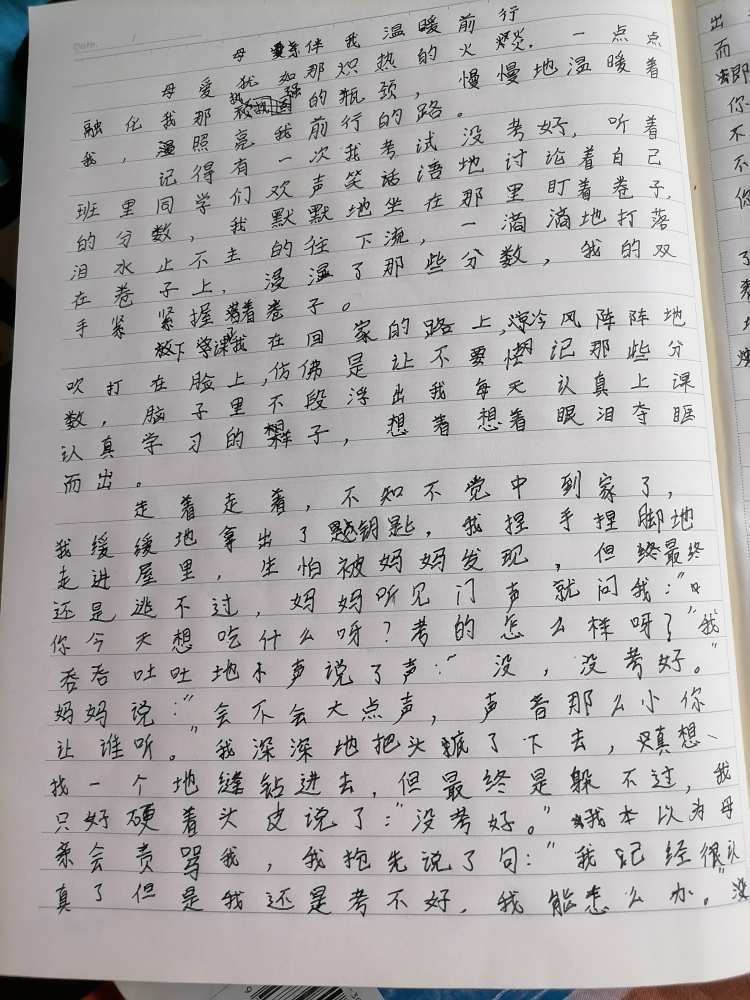 Date. /
母爱伴我温暖前行
母爱犹如那炽热的火焱.一点点
融化我那的瓶颈,慢慢地温暖着
我,照亮我前行的路。
记得有一次我考试没考好,听着
班里同学们欢声笑话语地讨论着自己
的分数,我默默地坐在那里盯着卷子,
泪水止不主的往下流,一滴滴地打落
在卷子上,浸湿了那些分数,我的双
手紧紧握着卷子。
放下学我在回家的路上,凉冷风阵阵地
吹打在脸上,仿佛是让不要忘记那些分
数,脑子里不段浮出我每天认真上课
认真学习的样子,想着想着眼泪夺眶
而出。
走着走着,不知不觉中到家了,
我缓缓地拿出了钥匙,我捏手捏脚地
走进屋里,生怕被妈妈发现,但最终
还是逃不过,妈妈听见门声就问我:"
你今天想吃什么呀?考的怎么样呀?"我
吞吞吐吐地小声说了声:"没,没考好。"
妈妈说:"会不会大点声,声音那么小你
让谁听。"我深深地把头底了下去,真想
找一个地缝钻进去,但最终是躲不过,我
只好硬着头皮说了:"没考好。"我本以为母
亲会责骂我,我抱先说了句:"我记经很认
真了但是我还是考不好.我能怎么办。"没
出
而
即
你
不
不
你
了